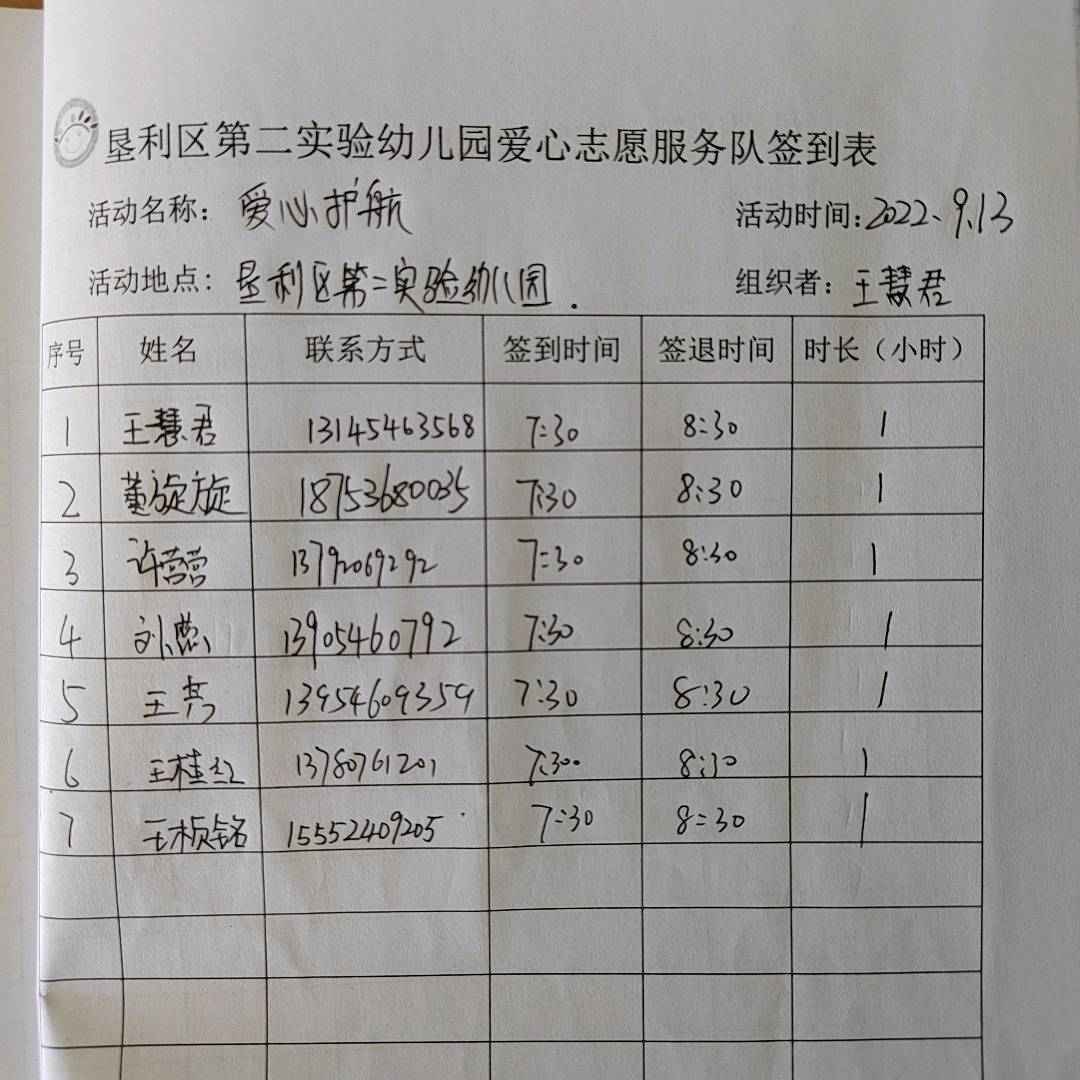 垦利区第二实验幼儿园爱心志愿服务队签到表
活动名称: 爱心护航 活动时间: 2022、9.13
活动地点: 垦利区第二实验幼儿园. 组织者: 王慧君
序号 姓名 联系方式 签到时间 签退时间 时长（小时）
1 王慧君 13145463568 7:30 8:30 1
2 董旋旋 18753680035 7:30 8:30 1
3 许营营 13792069292 7:30 8:30 1
4 刘 13905460792 7:30 8:30 1
5 王 13954609359 7:30 8:30 1
6 王桂红 13780761201 7:30 8:30 1
7 王桢铭 15552409205 7:30 8:30 1